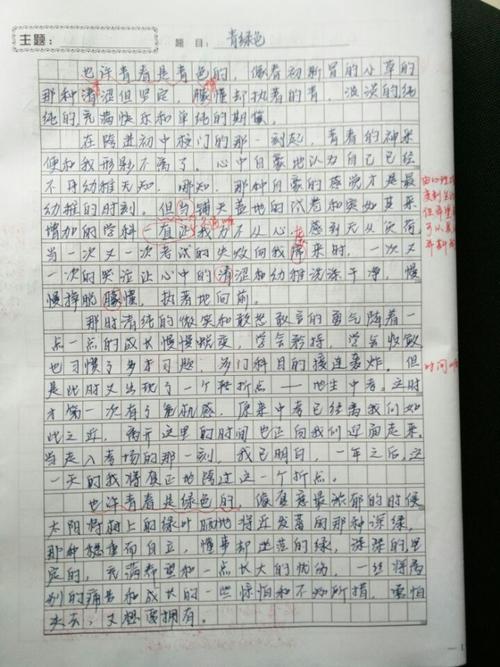 主题：
题目：青绿色
也许青春是青色的，像春初新冒的小草的
那种清涩但坚定，朦懂却执着的青，淡淡的纯
纯的充满快乐和单纯的期像
在跨进初中校门的那一刻起，青春的神采
便和我形影不离了。心中自豪地认为自己已经
不再幼稚无知，哪知，那种自豪的感觉才是最
幼稚的时刻。但当铺天盖地的试卷和突如其来
增加的学科一直让我力不从心，感到无从负荷
当一次又一次考试的失败向我席来时，一次又
一次的哭泣让心中的清涩和幼稚洗涤干净，慢
慢摔脱朦懂，执着地向前。
那时春纯的微笑和敢想敢言的勇气随着一
点一点的成长慢慢蜕变，学会矜持，学会收敛
也习惯了多于习题，多门科目的接连轰炸。但
是此时又出现了一个转折点——地生中考。这时
才第一次有了危机感，原来中考已经离我们如
此之近，离开这里的时间也正向我们迎面走来。
当走入考场的那一刻，我已明白，一年之后，这
一天的我将真正地跨过这一个折点。
也许青春是绿色的，像夏意最浓郁的时候
太阳将树上的绿叶晒地将近发青的那种深绿，
那种稳重而自立，懂事却迷茫的绿，深深的坚
定的，充满希望和一点长大的忧伤，一丝将离
别的痛苦和成长的一些惊怕和不知所措，害怕
失去，又想要拥有。
时间